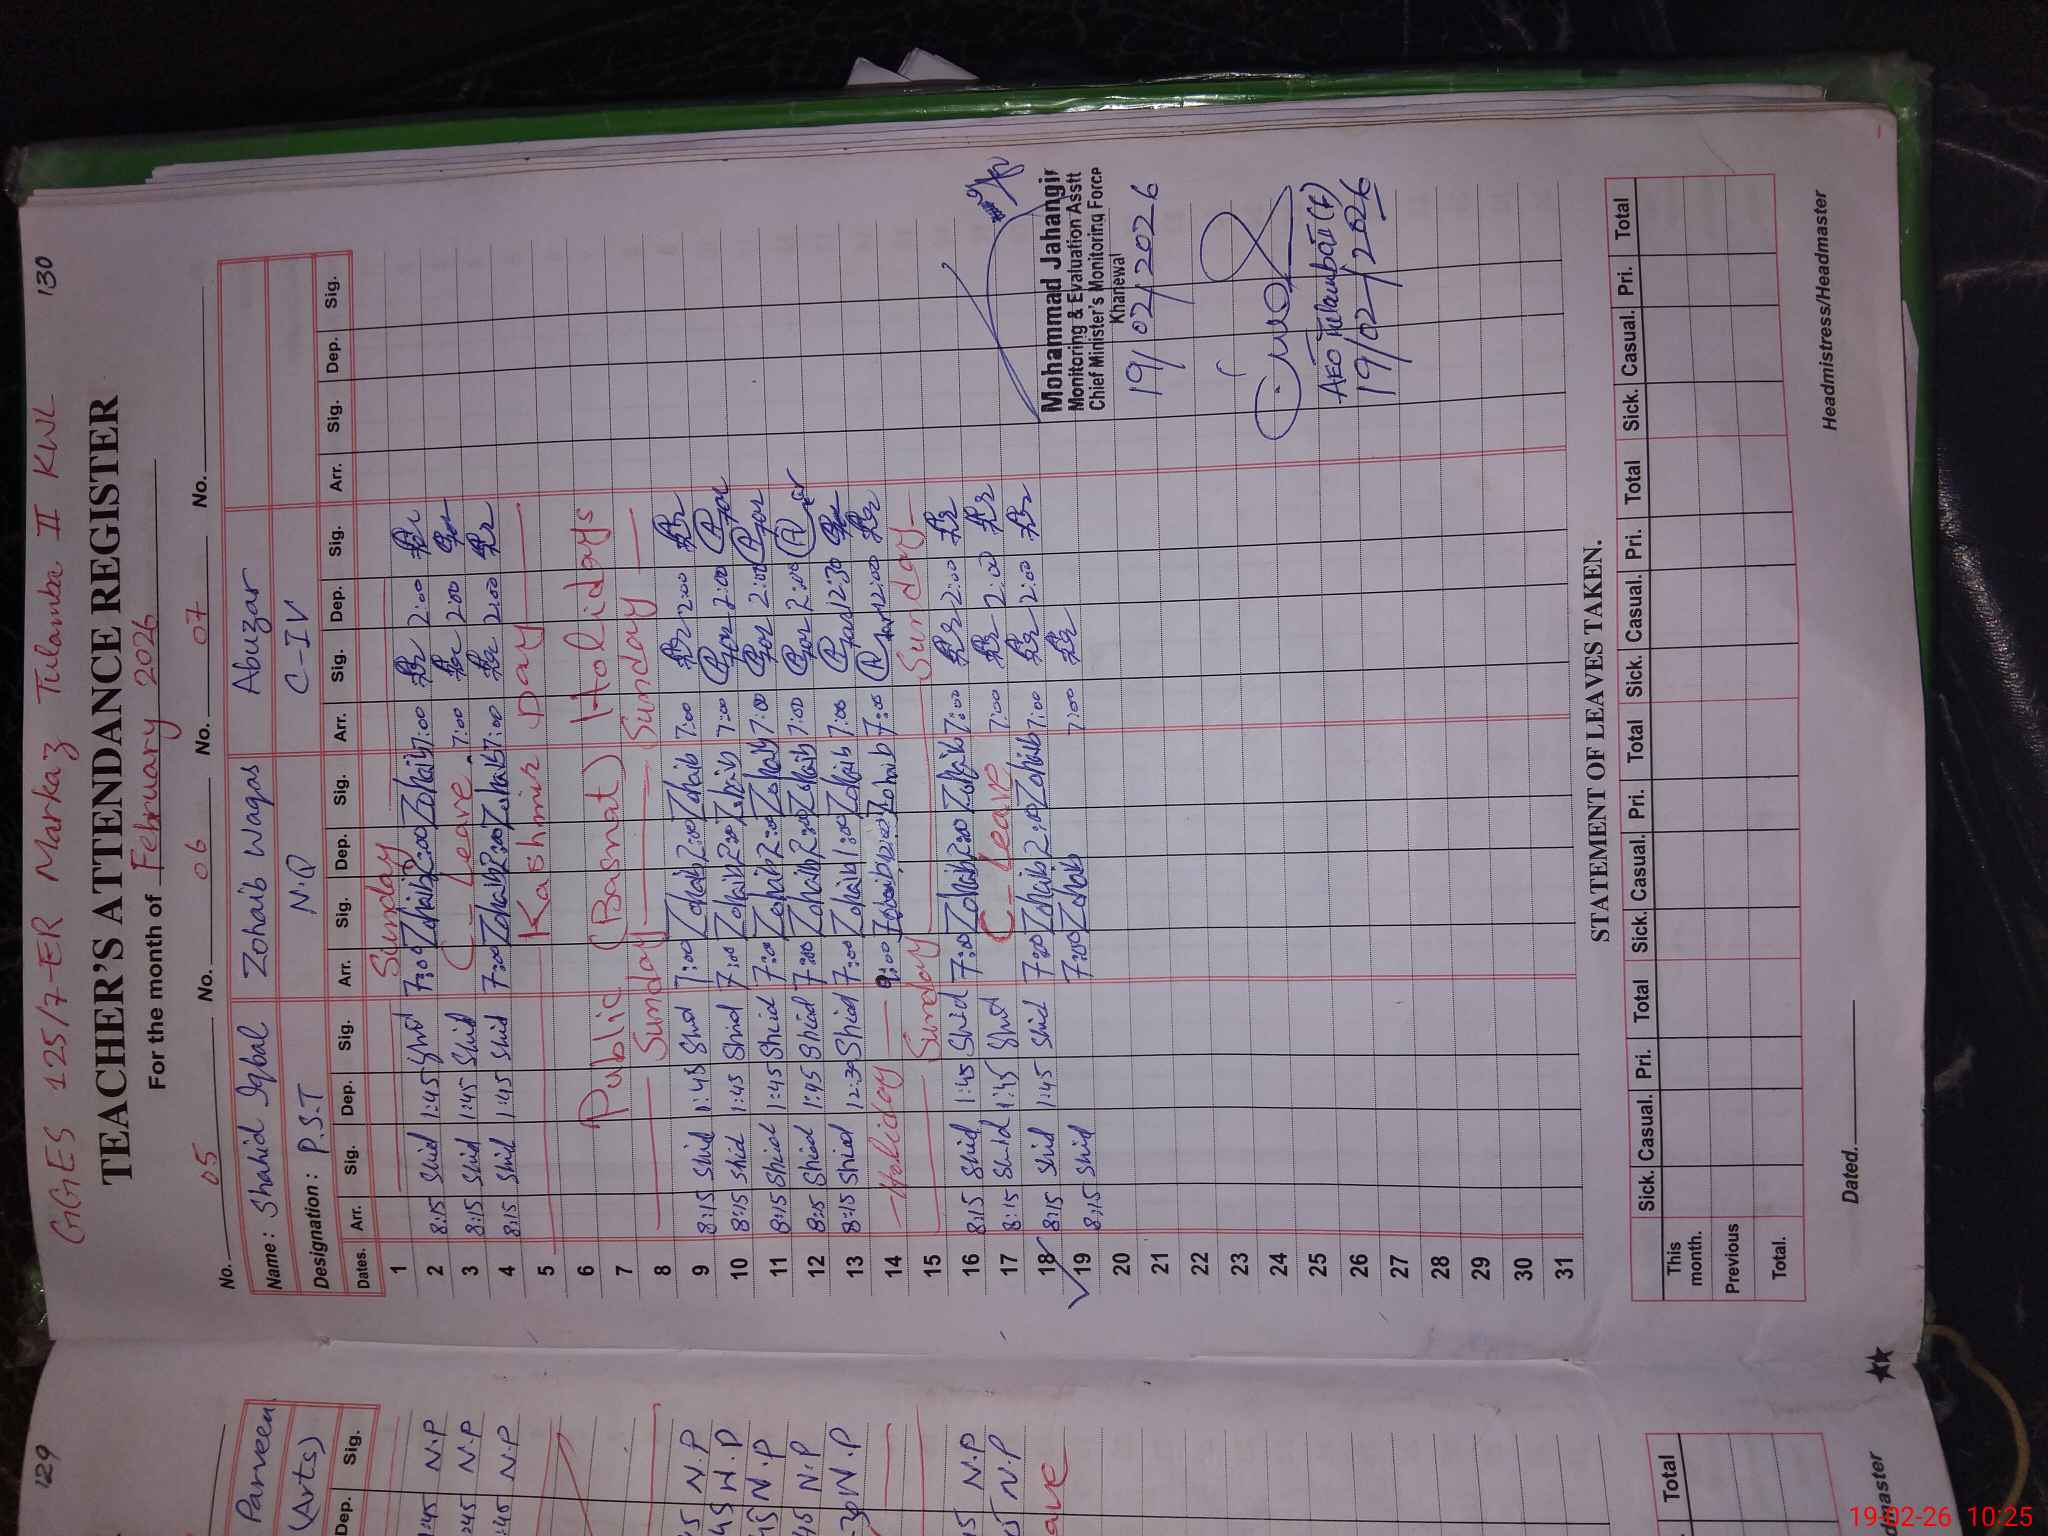 130
GGES 125/7-ER Markaz Tulamba II KWL
TEACHER'S ATTENDANCE REGISTER
For the month of February 2026
No. 05 No. 06 No. 07 No.
Name: Shahid Iqbal Zohaib Waqas Abuzar
Designation: P.S.T N.Q C-IV
Dates. Arr. Sig. Dep. Sig. Arr. Sig. Dep. Sig. Arr. Sig. Dep. Sig. Arr. Sig. Dep. Sig.
1 Sunday
2 8:15 Shid 1:45 Shid 7:00 Zohaib 2:00 Zohaib 7:00 2:00
3 8:15 Shid 1:45 Shid C-Leave. 7:00 2:00
4 8:15 Shid 1:45 Shid 7:00 Zohaib 2:00 Zohaib 7:00 2:00
5 Kashmir Day
6 Public (Basnat) Holidays
7
8 Sunday Sunday Sunday
9 8:15 Shid 1:45 Shid 7:00 Zohaib 2:00 Zohaib 7:00 2:00
10 8:15 Shid 1:45 Shid 7:00 Zohaib 2:00 Zohaib 7:00 2:00
11 8:15 Shid 1:45 Shid 7:00 Zohaib 2:00 Zohaib 7:00 2:00
12 8:15 Shid 1:45 Shid 7:00 Zohaib 2:00 Zohaib 7:00 2:00
13 8:15 Shid 12:30 Shid 7:00 Zohaib 1:00 Zohaib 7:00 12:30
14 Holiday Zohaib 12:00 Zohaib 7:00 12:00
15 Sunday Sunday
16 8:15 Shid 1:45 Shid 7:00 Zohaib 2:00 Zohaib 7:00 2:00
17 8:15 Shid 1:45 Shid C-Leave 7:00 2:00
18 8:15 Shid 1:45 Shid 7:00 Zohaib 2:10 Zohaib 7:00 2:00
19 8:15 Shid 7:00 Zohaib 7:00
20
21
22
23
24
25
26
27
28
29
30
31
Mohammad Jahangir
Monitoring & Evaluation Asstt
Chief Minister's Monitoring Force
Khanewal
19/02/2026
AEO Tulamba II (F)
19/02/2026
STATEMENT OF LEAVES TAKEN.
Sick. Casual. Pri. Total Sick. Casual. Pri. Total Sick. Casual. Pri. Total Sick. Casual. Pri. Total
This month.
Previous
Total.
Dated. Headmistress/Headmaster
129
Parveen
(Arts)
Dep. Sig.
:45 N.P
:45 N.P
:45 N.P
45 N.P
45 N.P
45 N.P
45 N.P
:30 N.P
15 N.P
5 N.P
ave
Total
dmaster
19-02-26 10:25